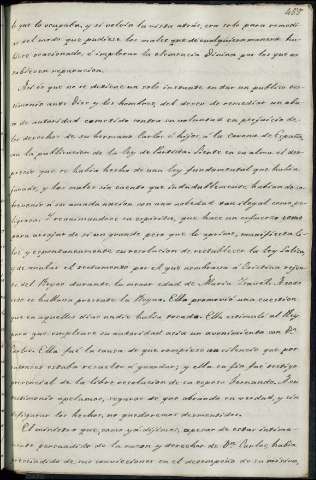 457
lo que lo ocupaba, y si volvia la vista atrás, era solo para remediar
del modo que pudiese los males que de cualquiera manera hu-
biere ocasionado, é implorar la clemencia Divina por los que no
tubiesen reparacion.
Así es que no se detiene un solo instante en dar un publico tes-
timonio ante Dios y los hombres del deseo de remediar un abu-
so de autoridad cometido contra su voluntad en perjuicio de
los derechos de su hermano Carlos é hijos, á la Corona de España,
en la publicacion de la ley de Partida. Siente en su alma el des-
precio que se habia hecho de una ley fundamental que habia
jurado, y los males sin cuento que indudablemente habian de so-
brevenir á su amada nacion con una novedad tan ilegal como pe-
ligrosa. Y reanimandose su espiritu, que hace un esfuerzo como
para arrojar de sí un grande peso que le oprime, manifiesta li-
bre y espontaneamente su resolucion de restablecer la ley Salica
y de anular el testamento por el que nombraba á Cristina regen-
te del Reyno durante la menor edad de Maria Isabel.
se hallaba presente la Reyna. Ella promovió una cuestion
que en aquellos dias nadie habia tocado. Ella estimuló al Rey
para que emplease su autoridad acia un avenimiento con Dn.
Carlos. Ella fué la causa de que rompiese un silencio que por
entonces estaba resuelto á guardar; y ella en fin fue testigo
presencial de la libre resolucion de su esposo Fernando. A su
testimonio apelamos, seguros de que obrando en verdad, y sin
desfigurar los hechos, no quedaremos desmentidos.
El ministro que, como ya dijimos, apesar de estar intima-
mente persuadido de la razon y derechos de Dn. Carlos, habia
prescindido de sus convicciones en el desempeño de su mision,